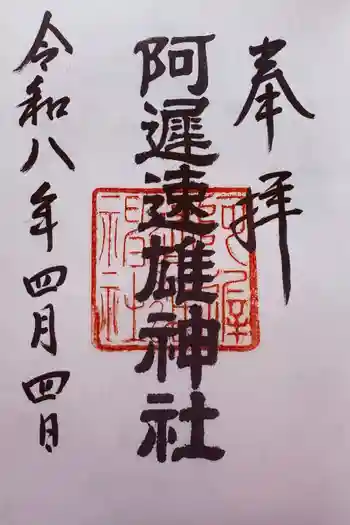 奉拝
阿遲速雄神社
令和八年四月四日